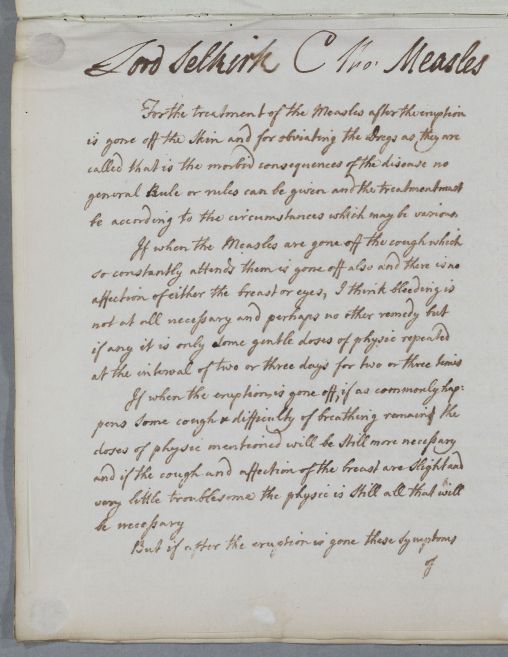 Lord Selkirk C Tho: Measles
For the treatment of the Measles after the eruption
is gone off the Skin and for obviating the Dregs as they are
called that is the morbid consequences of the disease no
general Rule or rules can be given and the treatment must
be according to the circumstances which may be various
If when the Measles are gone off the cough which
so constantly attends them is gone off also and there is no
affection of either the breast or eyes, I think bleeding is
not at all necessary and perhaps no other remedy but
if any it is only some gentle doses of physic repeated
at the interval of two or three days for two or three times
If when the eruption is gone off, if as commonly hap:
pens some cough & difficulty of breathing remains the
doses of physic mentioned will be still more necessary
and if the cough and affection of the breast are slight and
very little troublesome the physic is still all that will
be necessary
But if after the eruption is gone these symptoms
of